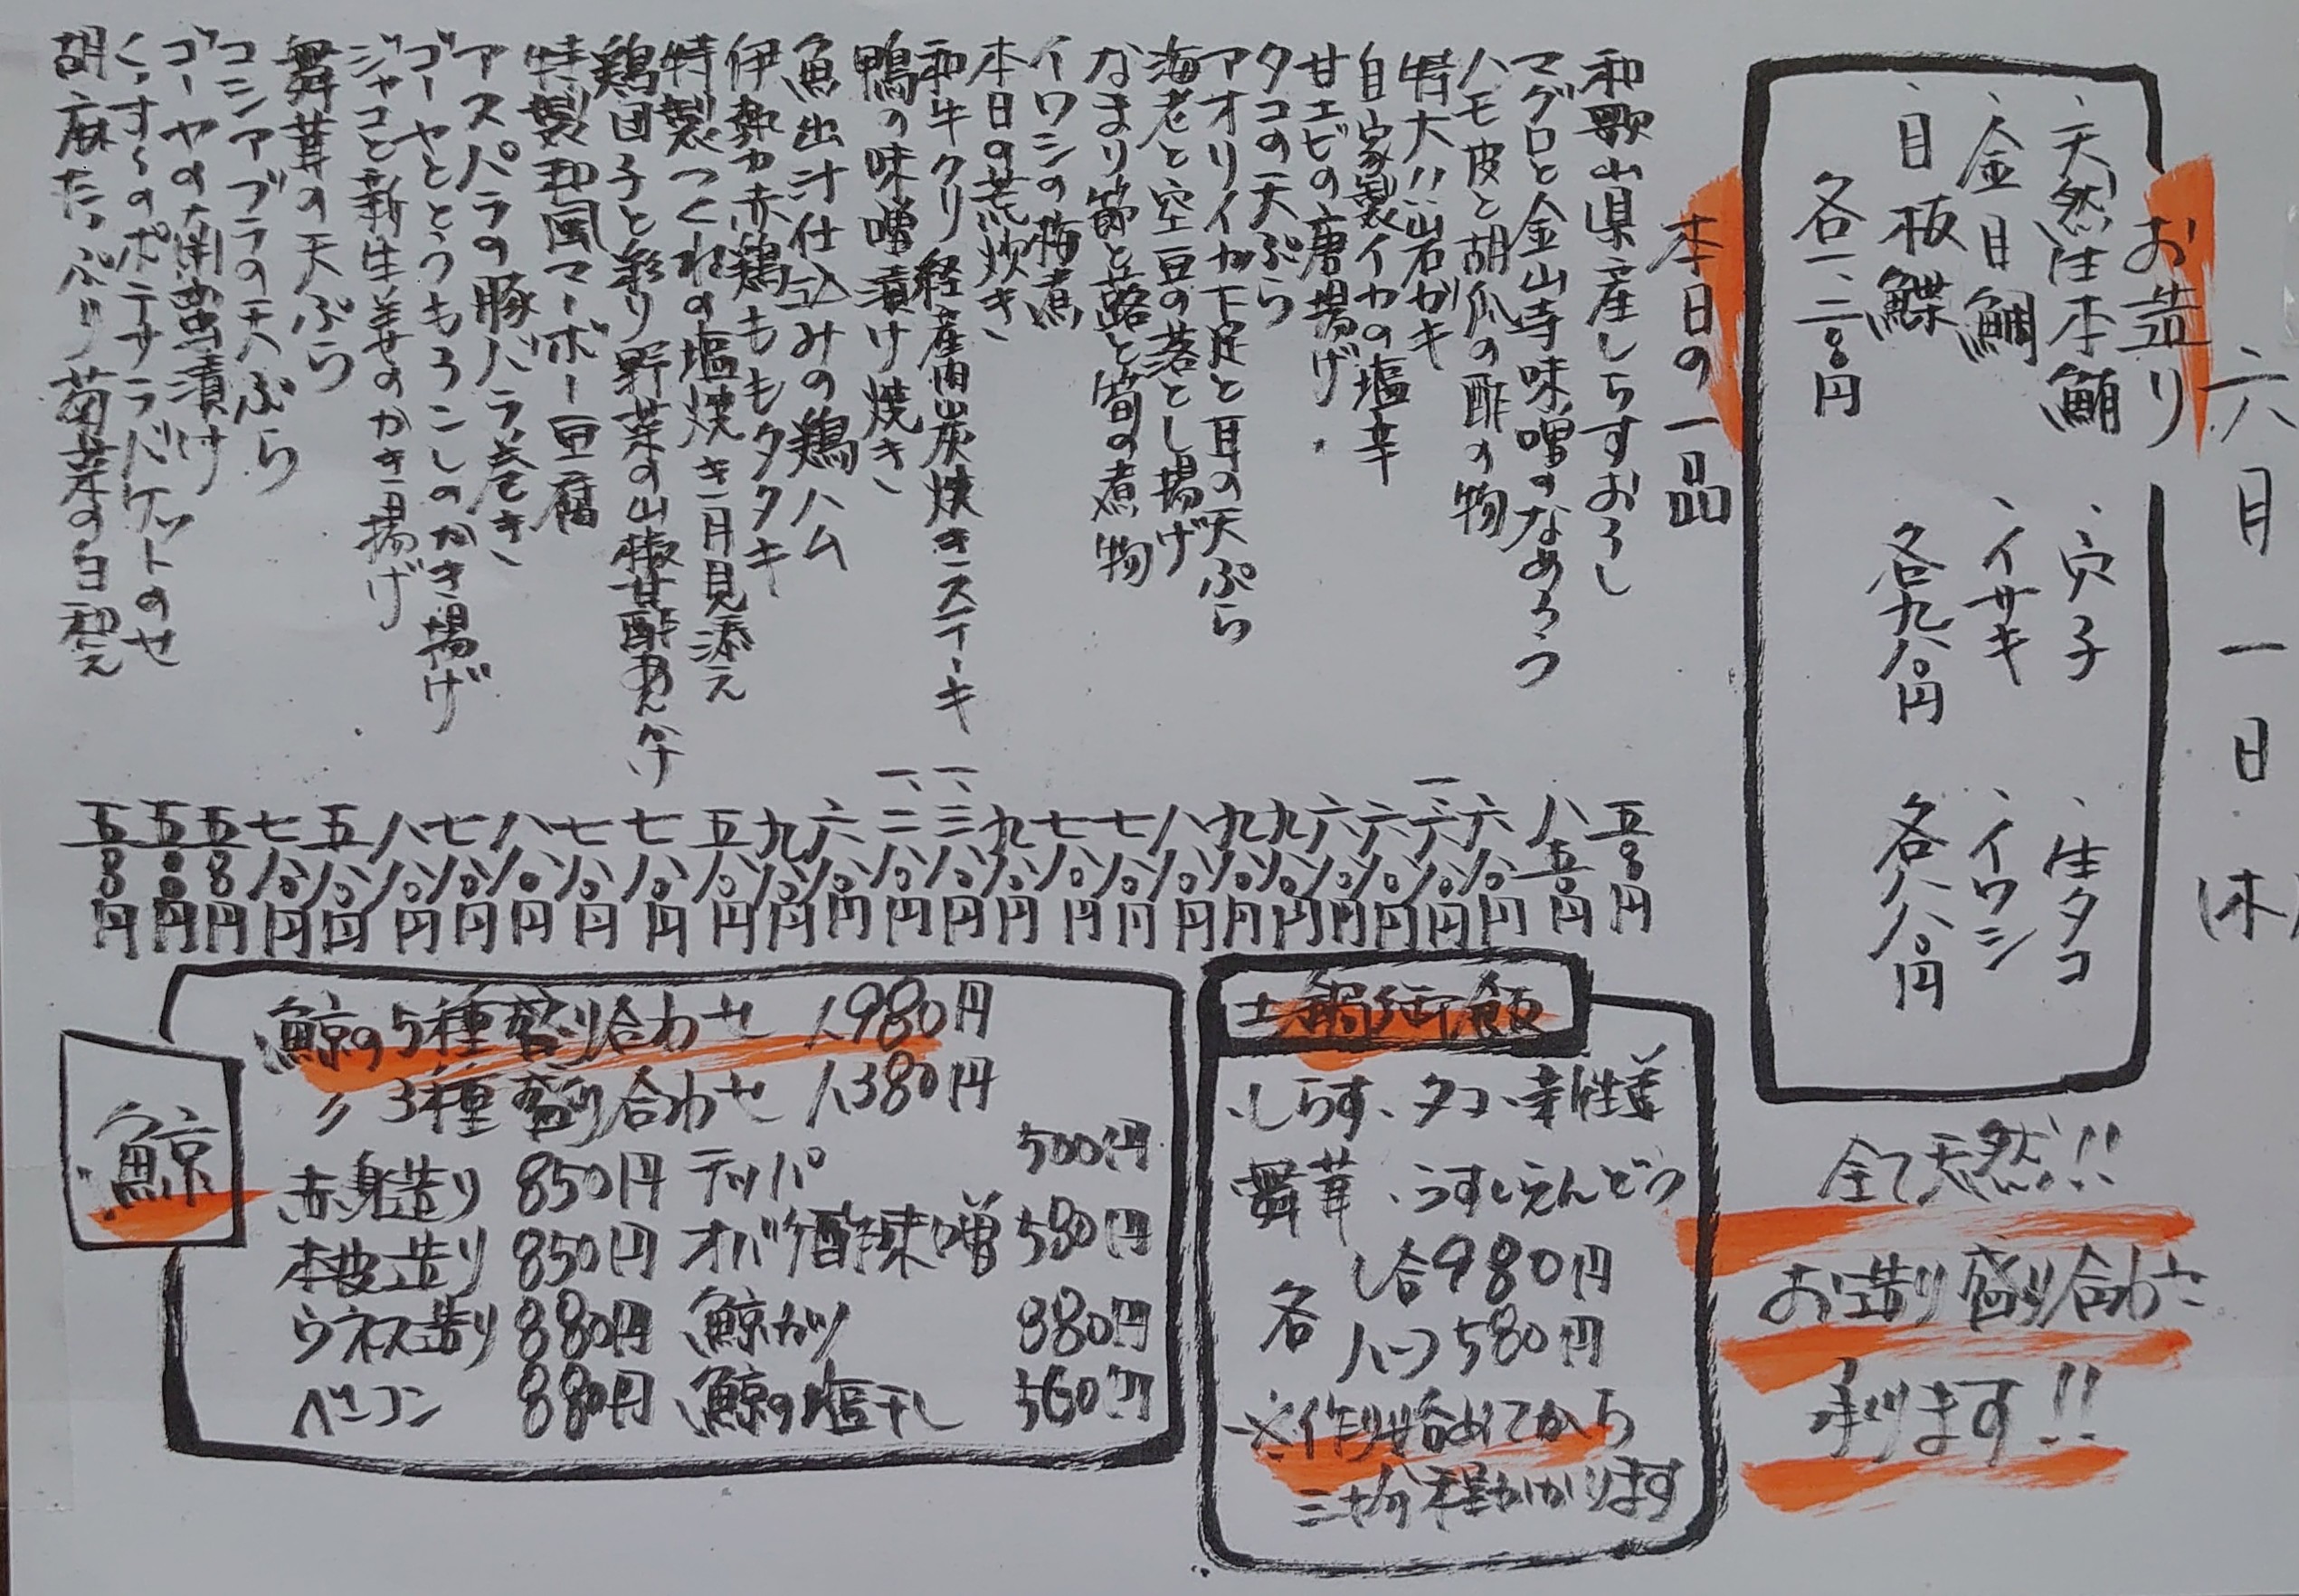 六月一日(木)
お造り
、天然生本鮪
、金目鯛
、目板鰈
各一、二〇〇円
、穴子
、イサキ
各九八〇円
、生タコ
、イワシ
各八八〇円
全て天然!!
お造り盛り合わせ
承ります!!
本日の一品
和歌山県産しらすおろし 五〇〇円
マグロと金山寺味噌のなめろう 八五〇円
ハモ皮と胡瓜の酢の物 六八〇円
特大!!岩ガキ
自家製イカの塩辛 六八〇円
甘エビの唐揚げ 六八〇円
タコの天ぷら 九八〇円
アオリイカ下足と耳の天ぷら 九八〇円
海老と空豆の落とし揚げ 八八〇円
なまり節と蕗と筍の煮物 七八〇円
イワシの梅煮 七八〇円
本日の荒炊き 九八〇円
和牛クリ 経産肉炭焼きステーキ 一、三八〇円
鴨の味噌漬け焼き 一、二八〇円
魚出汁仕込みの鶏ハム 六八〇円
伊勢赤鶏ももタタキ 九八〇円
特製つくねの塩焼き 月見添え 五八〇円
鶏団子と彩り野菜の山椒甘酢あんかけ 七八〇円
特製和風マーボー豆腐 七八〇円
アスパラの豚バラ巻き 八八〇円
ゴーヤととうもろこしのかき揚げ 七八〇円
ジャコと新生姜のかき揚げ 八八〇円
舞茸の天ぷら 五八〇円
コシアブラの天ぷら 七八〇円
ゴーヤの南蛮漬け 五〇〇円
くんすくのポテサラバケットのせ 五〇〇円
胡麻たっぷり菊菜の白和え 五〇〇円
土鍋御飯
、しらす、タコ、新生姜
舞茸、うすいえんどう
各 1合980円
ハーフ580円
※作り始めてから
三十分程かかります
鯨
鯨の5種盛り合わせ 1,980円
〃 3種盛り合わせ 1,380円
赤身造り 850円 テッパ 500円
本皮造り 850円 オバケ酢味噌 580円
ウネス造り 880円 鯨カツ 880円
ベーコン 880円 鯨の塩干し 560円